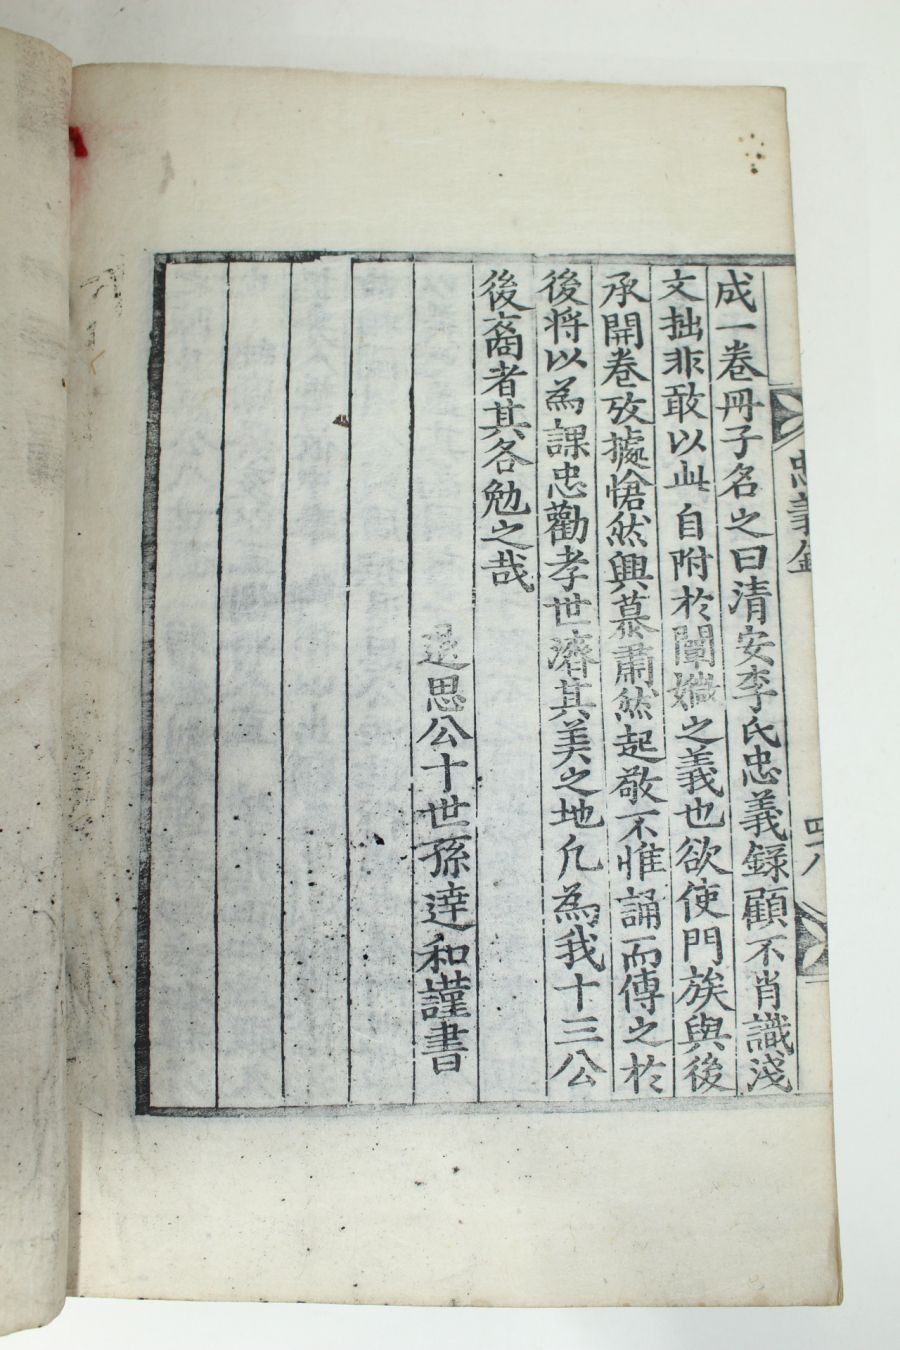 成一卷冊子名之曰清安李氏忠義錄顧不肖識淺
文拙非敢以此自附於闡媺之義也欲使門族與後
承開卷攷據愴然興慕肅然起敬不惟誦而傳之於
後將以為課忠勸孝世濟其美之地凡為我十三公
後裔者其各勉之哉
退思公十世孫達和謹書
忠義錄
四八